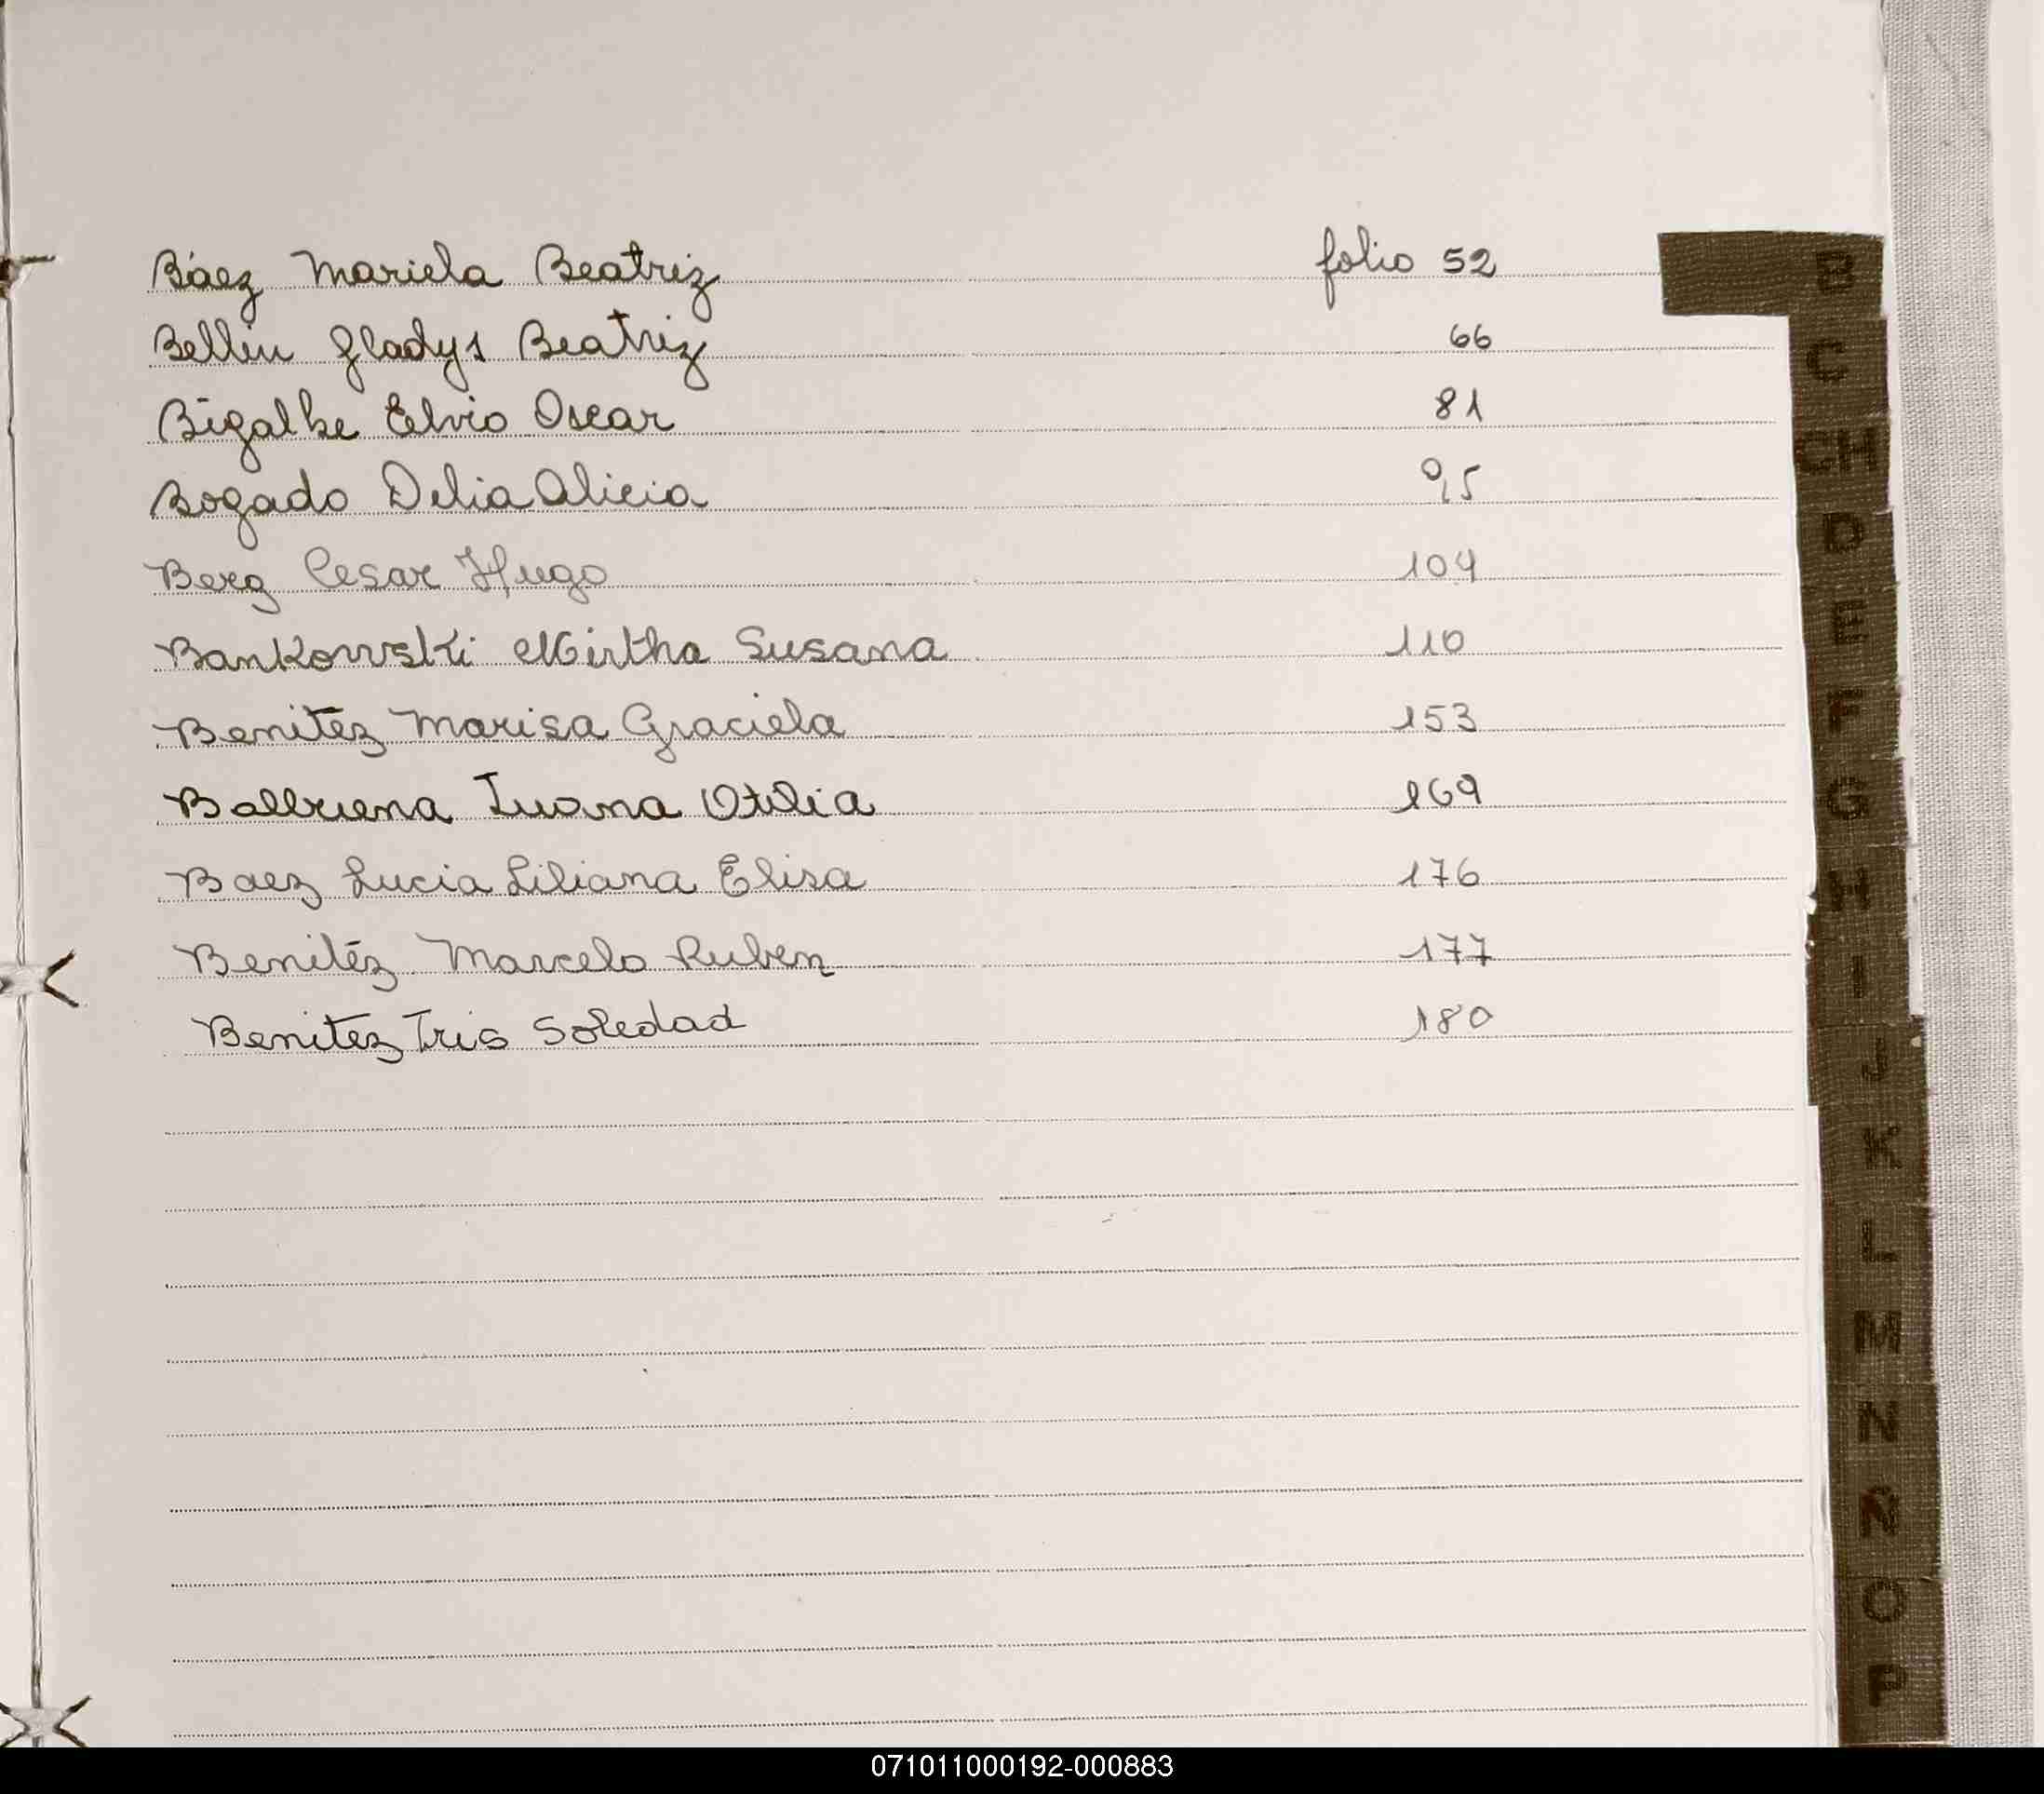 Báez Mariela Beatriz folio 52
Bellin Gladys Beatriz 66
Bigalke Elvio Oscar 81
Bogado Delia Alicia 95
Berg Cesar Hugo 104
Bankowski Mirtha Susana 110
Benitez Marisa Graciela 153
Balbuena Juana Otilia 169
Baez Lucia Liliana Elisa 176
Benitéz Marcelo Ruben 177
Benitez Iris Soledad 180
B
C
CH
D
E
F
G
H
I
J
K
L
M
N
Ñ
O
P
071011000192-000883